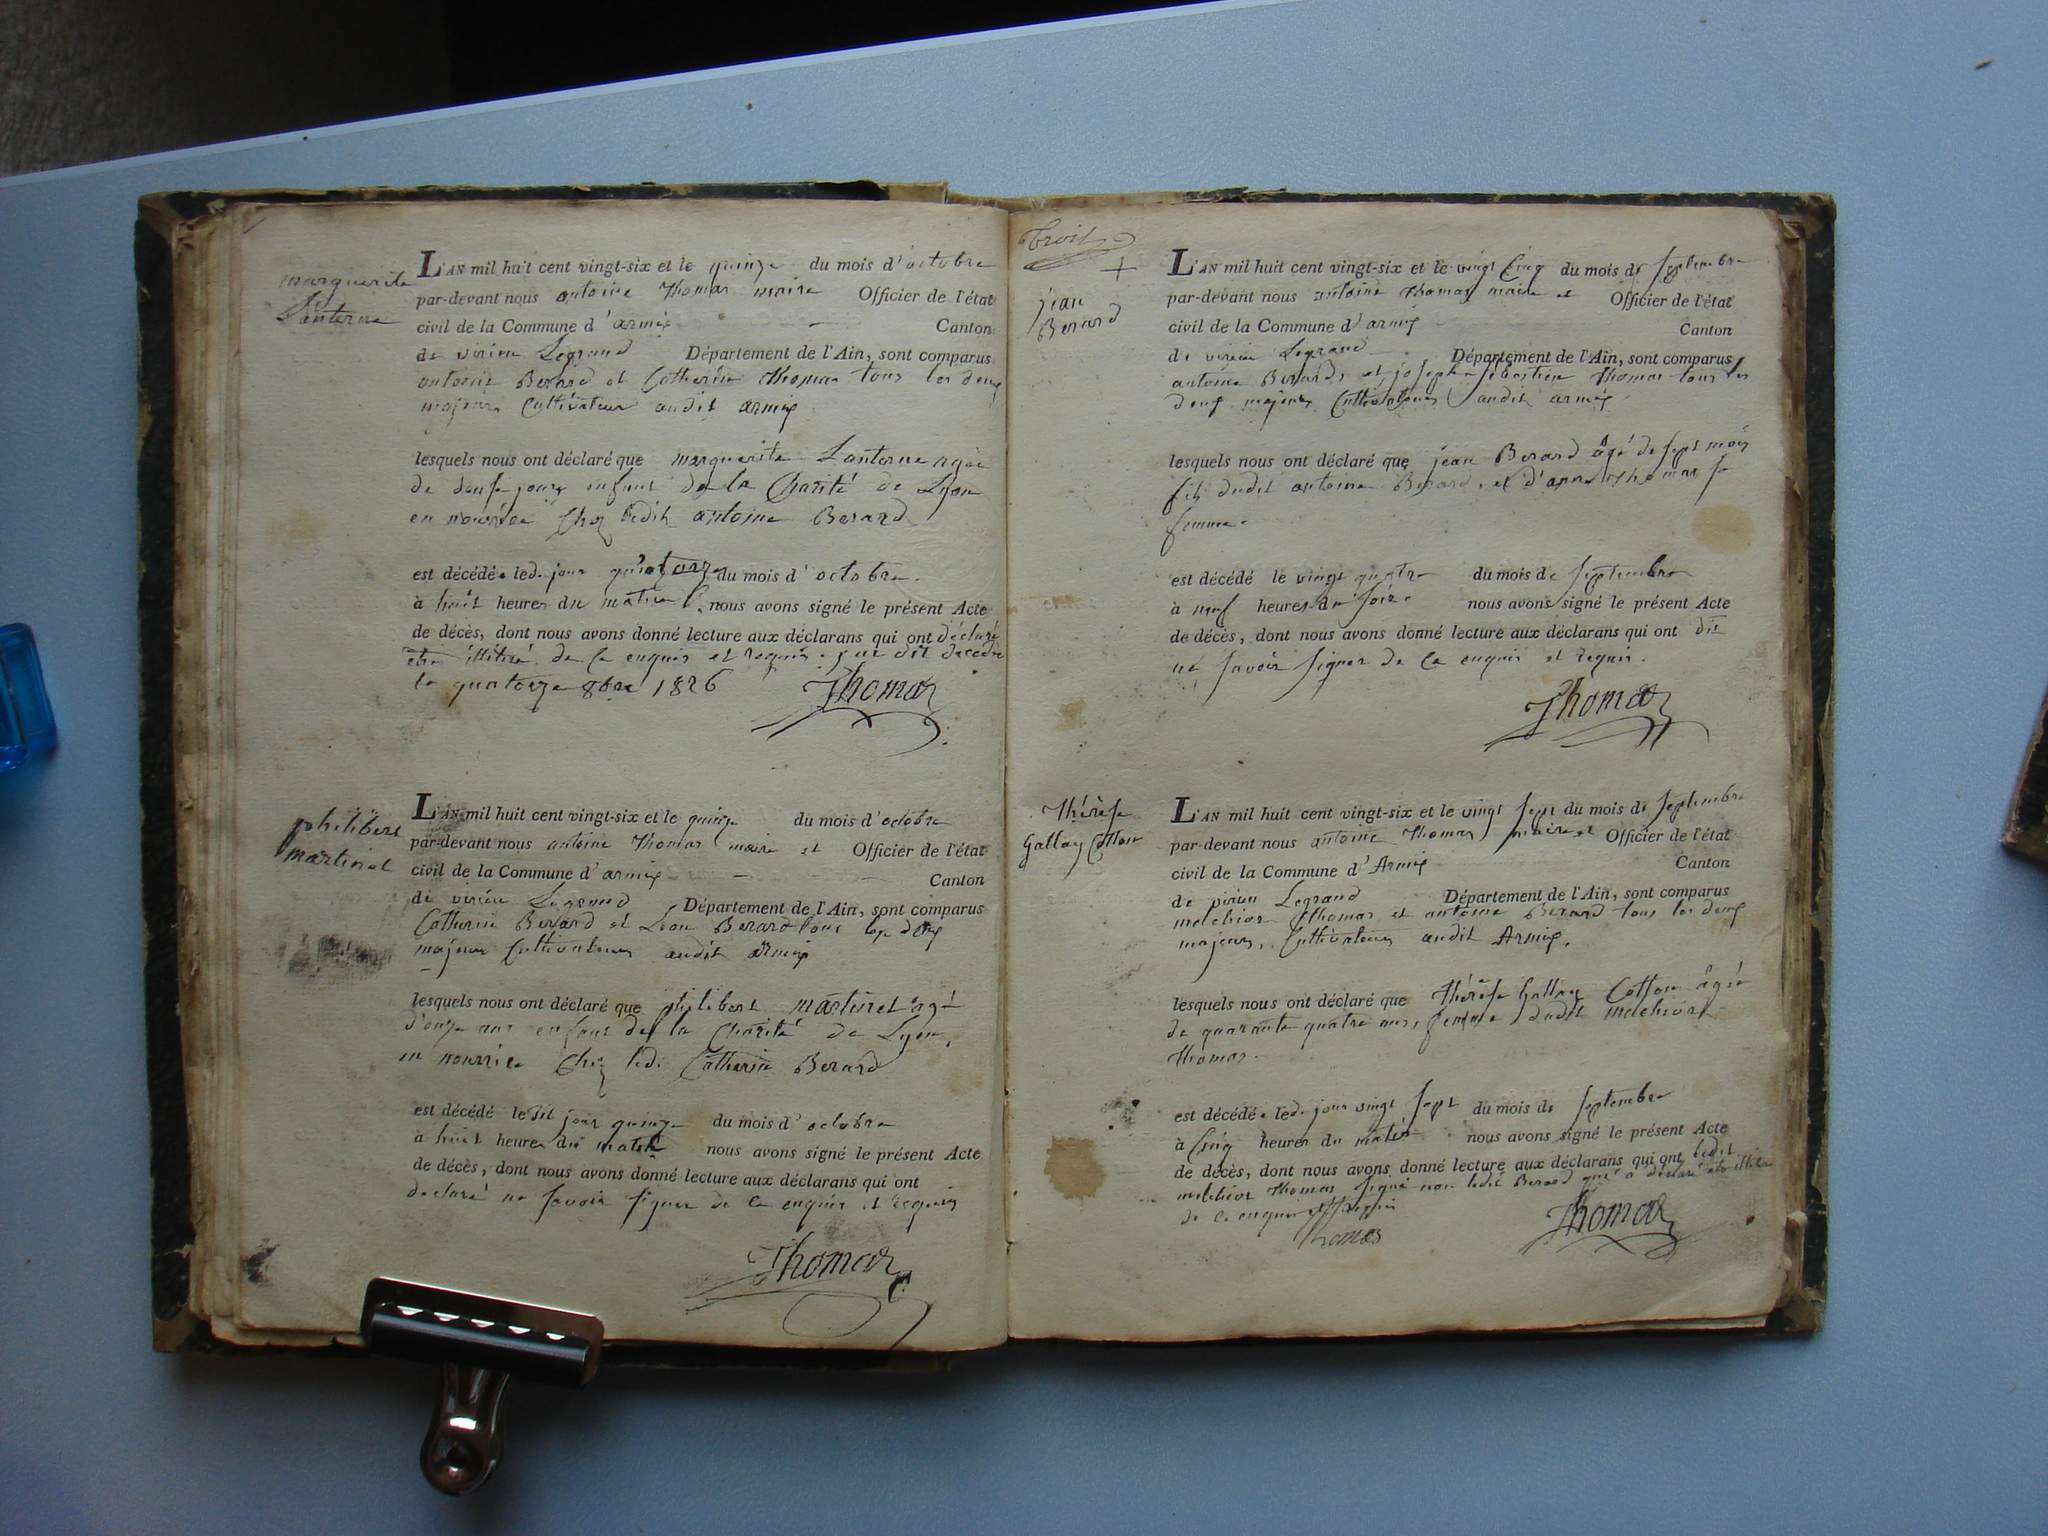 marguerite
Lanterne
L'AN mil huit cent vingt-six et le quinze du mois d'octobre
par-devant nous antoine Thomas maire Officier de l'état
civil de la Commune d'armix Canton
de virieu Legrand Département de l'Ain, sont comparus
antoine Berard et Catherine Thomas tous les deux
majeurs Cultivateur audit armix
lesquels nous ont déclaré que marguerite Lanterne agée
de douse jours enfant de la Charité de Lyon
en nourrice chez ledit antoine Berard
est décédée led. jour quatorze du mois d'octobre.
à huit heures du matin nous avons signé le présent Acte
de décès, dont nous avons donné lecture aux déclarans qui ont déclaré
etre illitiré de ce enquis et requis. dit decedée
le quatorze 8bre 1826 Thomas
philibert
martinet
L'AN mil huit cent vingt-six et le quinze du mois d'octobre
par-devant nous antoine Thomas maire et Officier de l'état
civil de la Commune d'armix Canton
de virieu Legrand Département de l'Ain, sont comparus
Catherine Berard et Léon Berard tous les deux
majeurs Cultivateurs audit armix
lesquels nous ont déclaré que philibert martinet agé
d'onze ans enfant de la Charité de Lyon,
en nourrice Chez led. Catherine Berard
est décédé ledit jour quinze du mois d'octobre
à huit heures du matin nous avons signé le présent Acte
de décès, dont nous avons donné lecture aux déclarans qui ont
declaré ne savoir signer de ce enquis et requis
Thomas
trois
jean
Berard
L'AN mil huit cent vingt-six et le vingt Cinq du mois de septembre
par-devant nous antoine Thomas maire et Officier de l'état
civil de la Commune d'armix Canton
de virieu Legrand Département de l'Ain, sont comparus
antoine Berard, et joseph sébastien Thomas tous les
deux majeurs Cultivateurs audit armix
lesquels nous ont déclaré que jean Berard âgé de sept mois
fils dudit antoine Berard, et d'anne Thomas sa
femme.
est décédé le vingt quatre du mois de septembre
à neuf heures du soir. nous avons signé le présent Acte
de décès, dont nous avons donné lecture aux déclarans qui ont dit
ne savoir signer de ce enquis et requis.
Thomas
Thérèse
Gallay Cotton
L'AN mil huit cent vingt-six et le vingt sept du mois de septembre
par-devant nous antoine Thomas maire et Officier de l'état
civil de la Commune d'Armix Canton
de virieu Legrand Département de l'Ain, sont comparus
melchior Thomas et antoine Berard tous les deux
majeurs, Cultivateurs audit Armix.
lesquels nous ont déclaré que thérèse Gallay Cotton âgée
de quarante quatre ans, femme dudit melchior
Thomas.
est décédée led. jour vingt sept du mois de septembre
à Cinq heures du matin nous avons signé le présent Acte
de décès, dont nous avons donné lecture aux déclarans qui ont ledit
melchior Thomas signé non ledit Berard qui a déclaré etre illitiré
de ce enquis et requis
Thomas Thomas